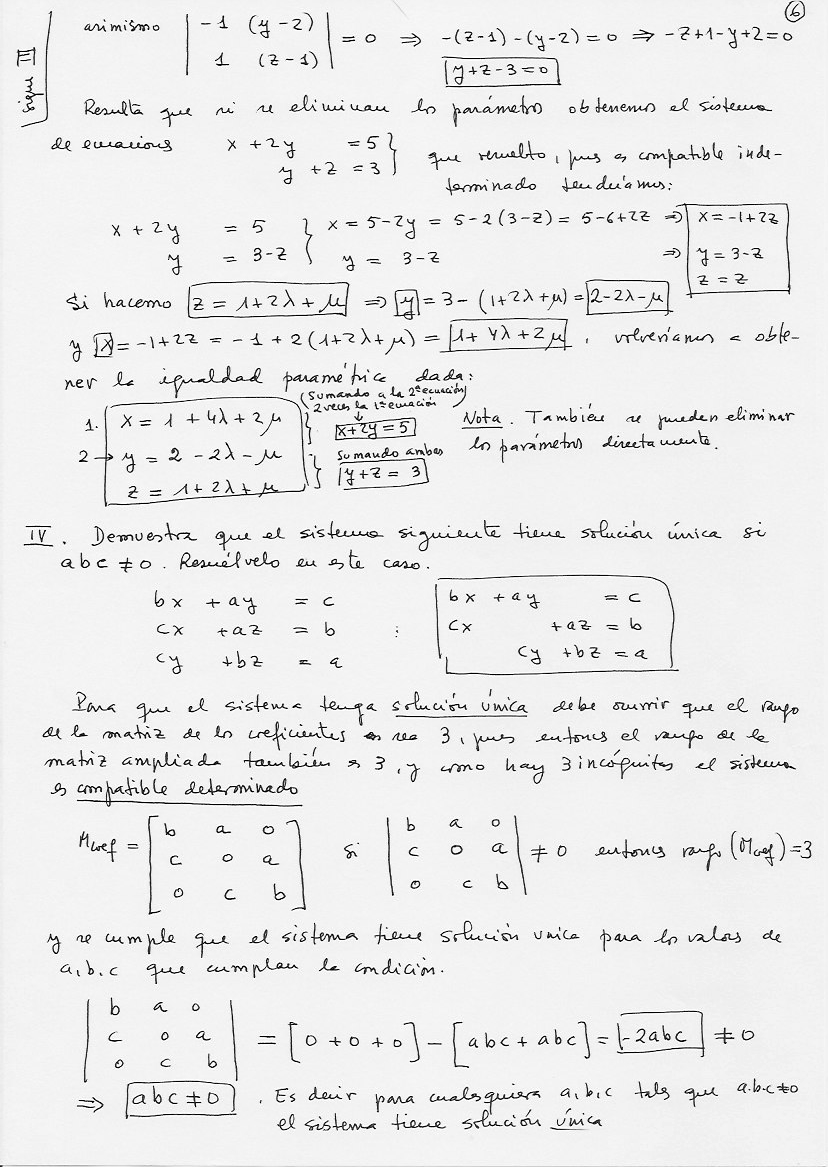 6
III sigue
asimismo | -1 (y-2) | = 0 ⇒ -(z-1)-(y-2)=0 ⇒ -z+1-y+2=0
| 1 (z-1) |
y+z-3=0
Resulta que si se eliminan los parámetros obtenemos el sistema
de ecuaciones x + 2y = 5 } que resuelto, pues es compatible inde-
y + z = 3 } terminado tendríamos:
x + 2y = 5 } x = 5-2y = 5-2(3-z) = 5-6+2z ⇒ x = -1+2z
y = 3-z } y = 3-z ⇒ y = 3-z
z = z
Si hacemo z = 1+2λ+μ ⇒ y = 3-(1+2λ+μ) = 2-2λ-μ
y x = -1+2z = -1+2(1+2λ+μ) = 1+4λ+2μ, volveríamos a obte-
ner la igualdad paramétrica dada:
(Sumando a la 2ª ecuación
2 veces la 1ª ecuación)
1. x = 1 + 4λ + 2μ } ↓ x+2y=5 Nota. También se pueden eliminar
2 → y = 2 - 2λ - μ } Sumando ambas los parámetros directamente.
z = 1+2λ+μ } y+z = 3
IV. Demuestra que el sistema siguiente tiene solución única si
abc ≠ 0. Resuélvelo en este caso.
bx + ay = c bx + ay = c
cx + az = b : cx + az = b
cy + bz = a cy + bz = a
Para que el sistema tenga solución única debe ocurrir que el rango
de la matriz de los coeficientes sea 3, pues entonces el rango de la
matriz ampliada también es 3, y como hay 3 incógnitas el sistema
es compatible determinado
Mcoef = [ b a 0 ] si | b a 0 | ≠ 0 entonces rango (Mcoef) = 3
[ c 0 a ] | c 0 a |
[ 0 c b ] | 0 c b |
y se cumple que el sistema tiene solución unica para los valores de
a,b,c que cumplan la condición.
| b a 0 |
| c 0 a | = [0+0+0] - [abc+abc] = -2abc ≠ 0
| 0 c b |
⇒ abc ≠ 0. Es decir para cualesquiera a,b,c tales que a.b.c≠0
el sistema tiene solución única